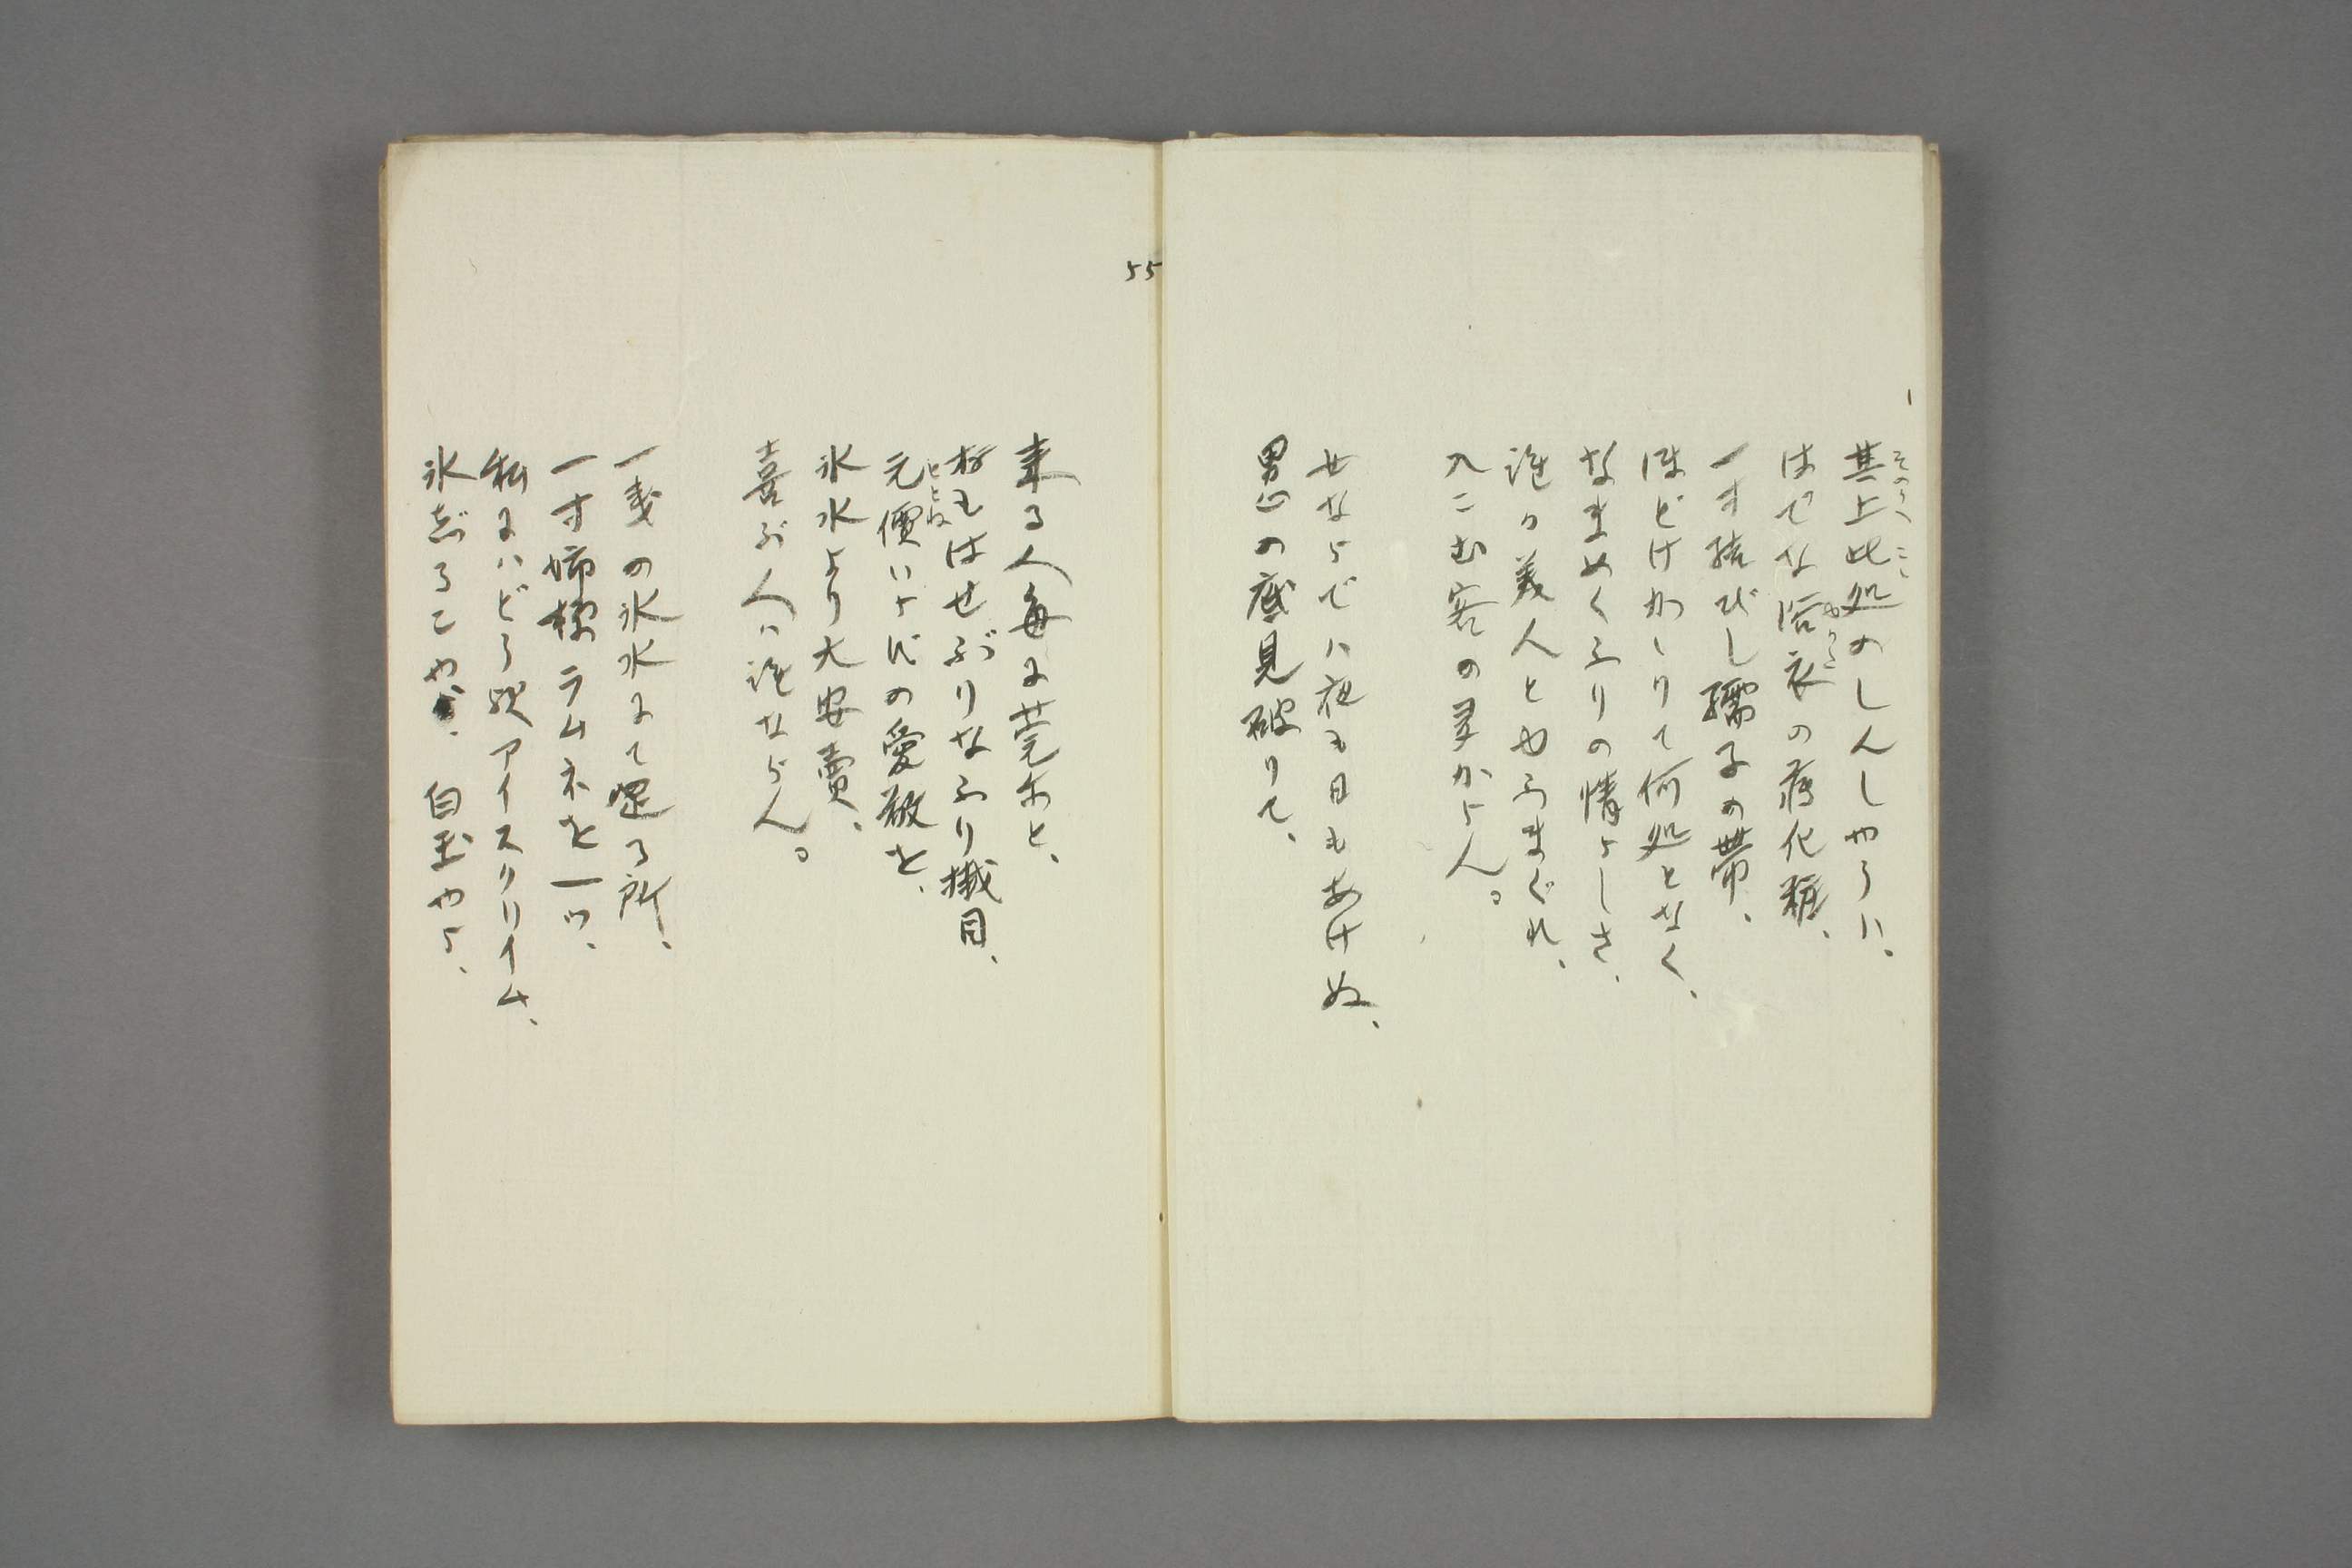 其上此処のしんしやうハ、
そのうへこゝ
はでな浴衣の薄化粧、
ゆかた
一寸結びし繻子の帯、
ほどけかゝりて何処となく、
なまめくふりの情らしさ、
誰か美人とやふまぐれ、
入こむ客の多からん。
せならでハ夜も日もあけぬ、
男心の底見破りて、
55
来る人毎に莞尓と、
おもはせぶりなふり擬目、
元價いらずの愛敬を、
もとね
氷水より大安賣、
喜ぶ人ハ誰ならん。
一戔の氷水にて涅る所、
一寸姉様ラムネを一ツ、
私にハどうぞアイスクリイム、
氷志るこや、白玉やら、